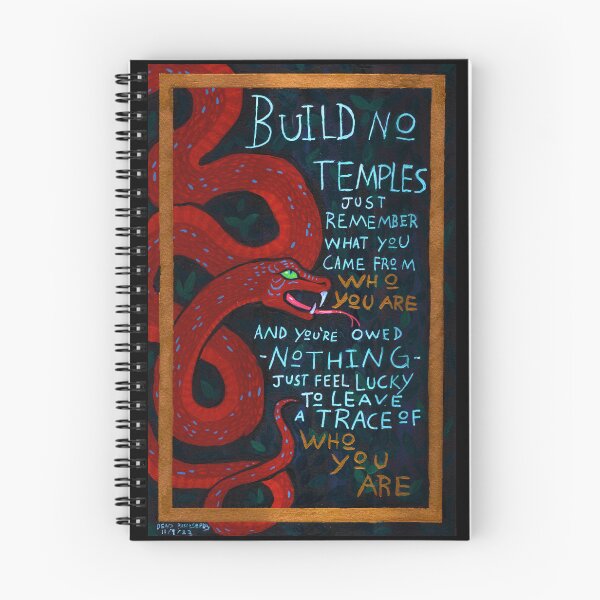 BUILD NO
TEMPLES
JUST
REMEMBER
WHAT YOU
CAME FROM
WHO
YOU ARE
AND YOU'RE OWED
-NOTHING-
JUST FEEL LUCKY
TO LEAVE
A TRACE OF
WHO
YOU
ARE
11/9/23